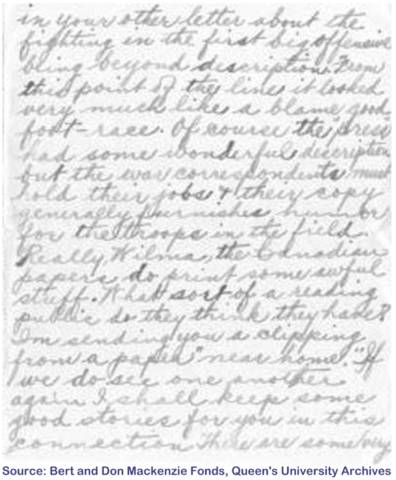 in your other letter about the
fighting in the first big offensive
being beyond description. From
this point of the line it looked
very much like a blame good
foot-race. Of course the press
had some wonderful description
but the war correspondents must
hold their jobs & their copy
generally furnishes humor
for the troops in the field.
Really Wilma, the Canadian
papers do print some awful
stuff. What sort of a reading
public do they think they have?
I'm sending you a clipping
from a paper "near home." If
we do see one another
again I shall keep some
good stories for you in this
connection. There are some very
Source: Bert and Don Mackenzie Fonds, Queen's University Archives